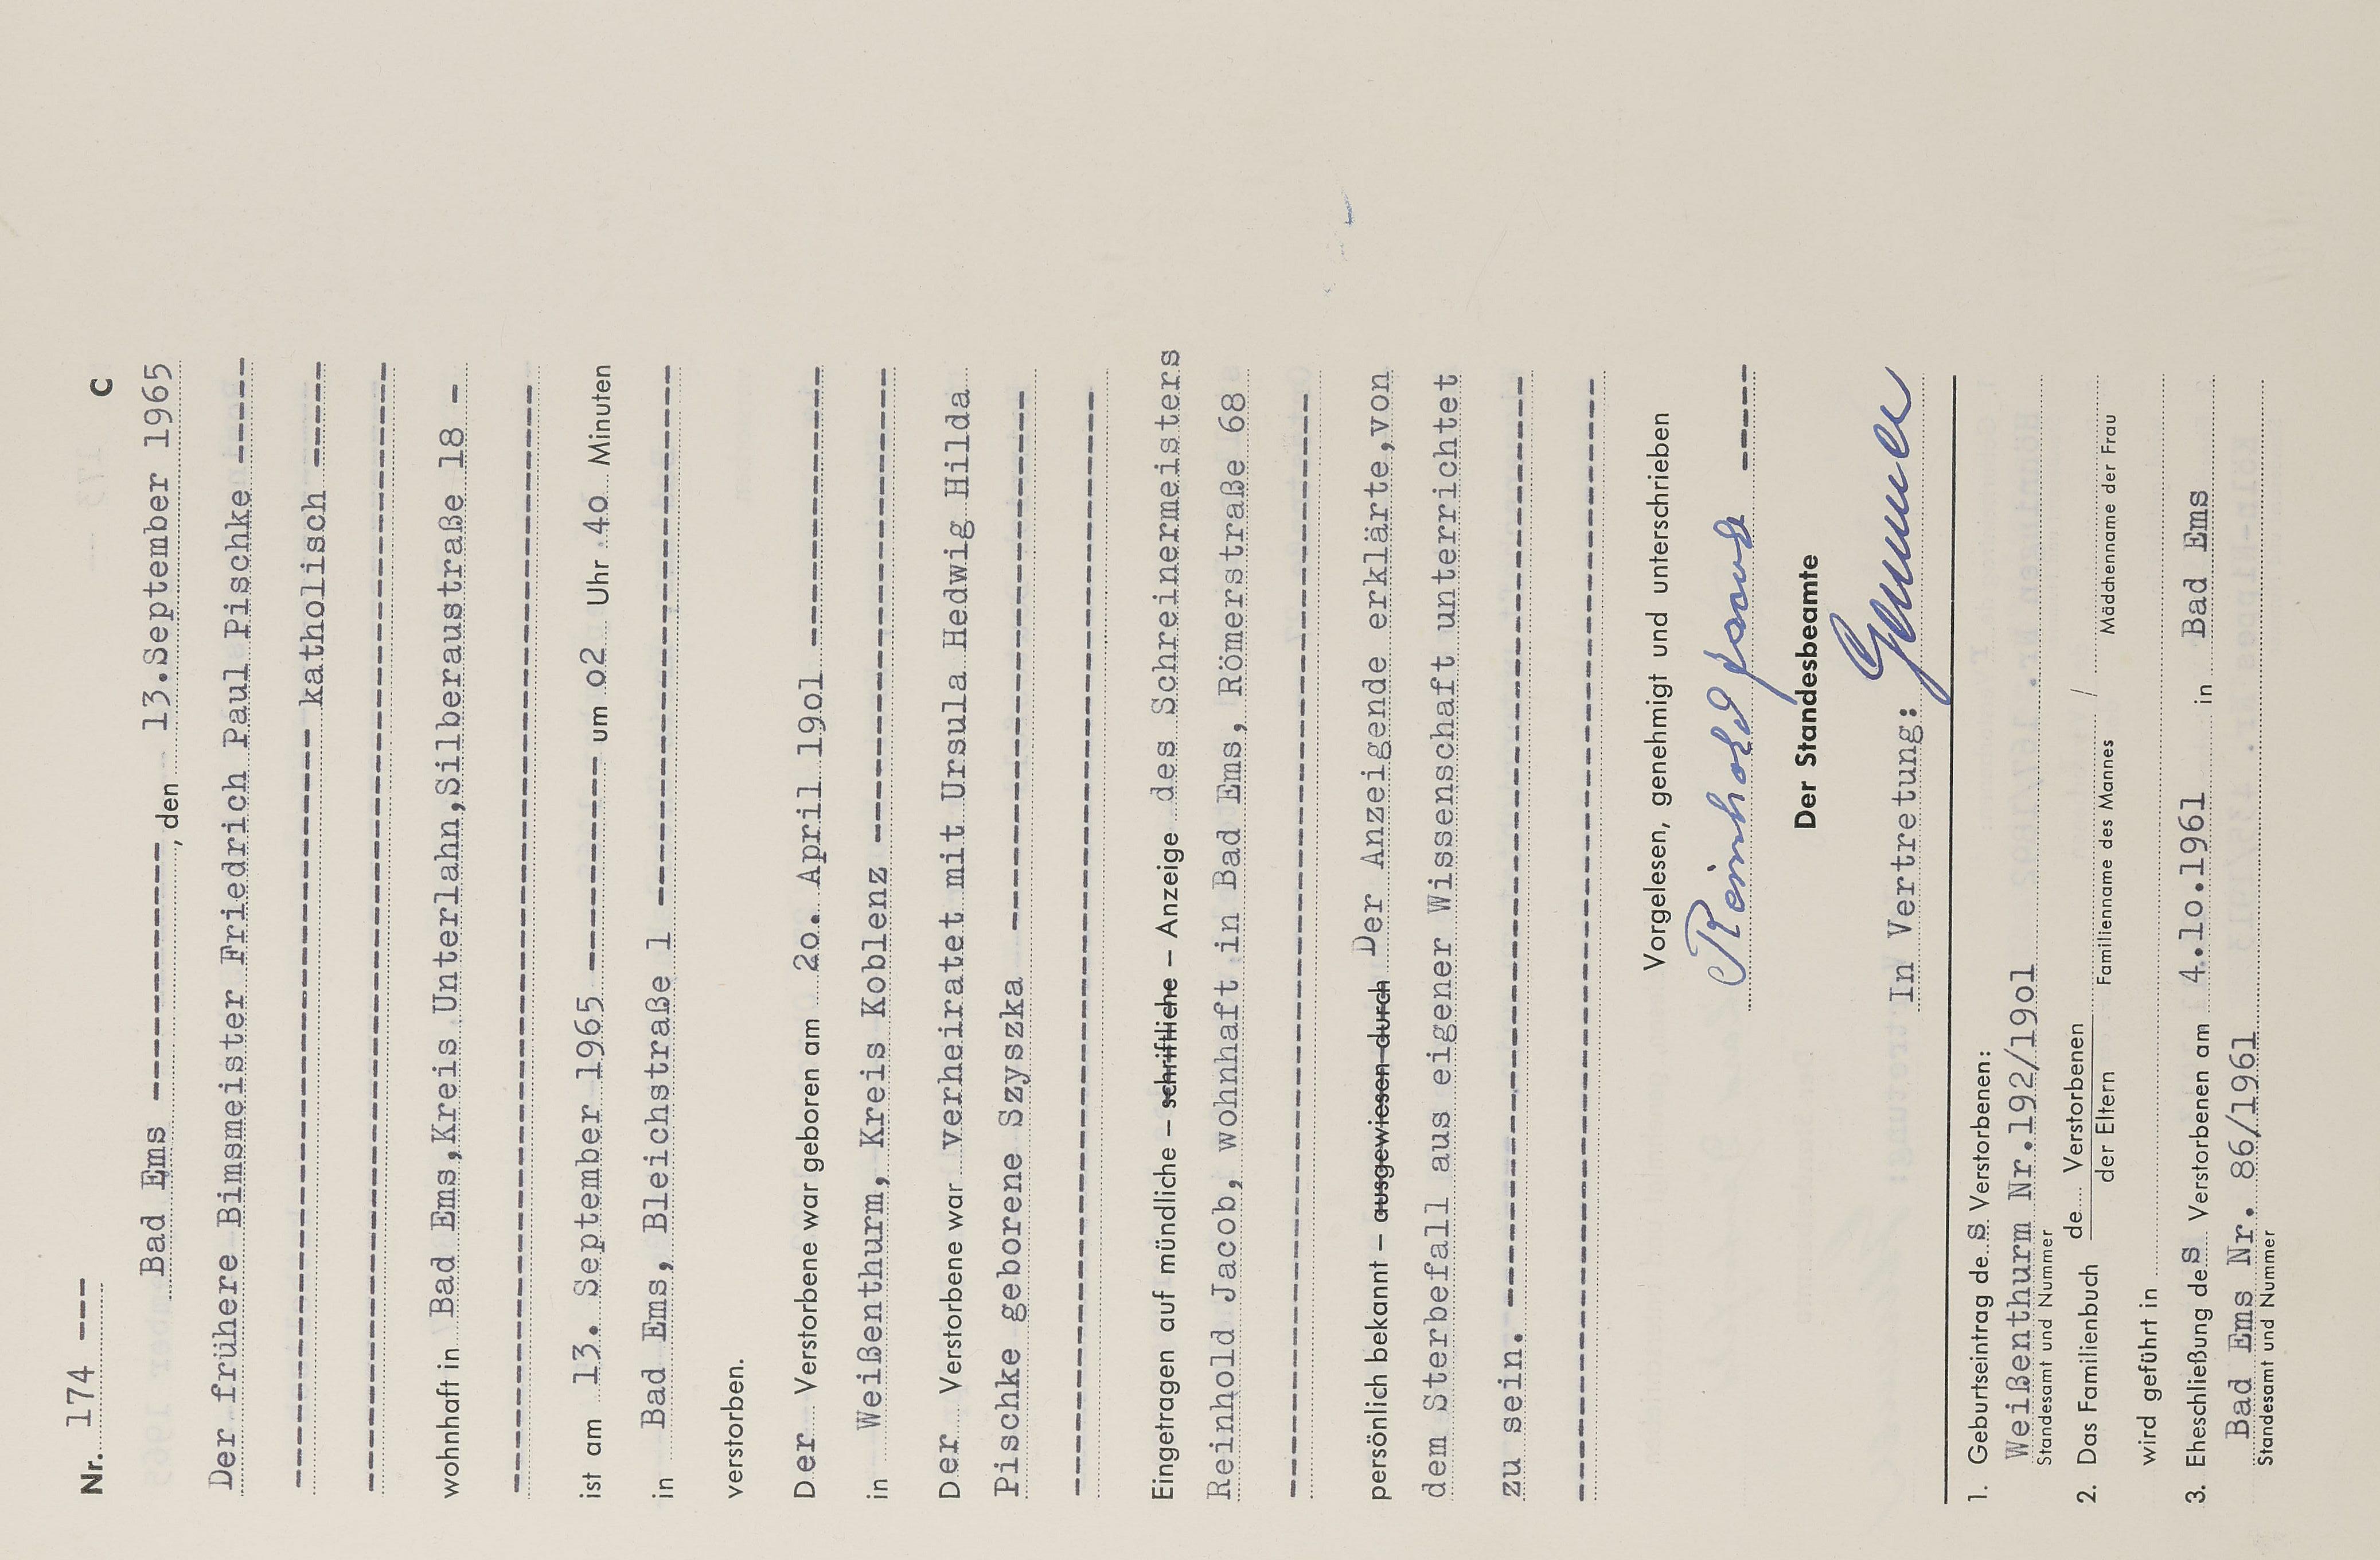 Nr. 174 --- C
Bad Ems ---------------, den 13.September 1965
Der frühere Bimsmeister Friedrich Paul Pischke -----
--------------------------------- katholisch -----
wohnhaft in Bad Ems,Kreis Unterlahn,Silberaustraße 18 -
ist am 13. September 1965 ----------- um o2 Uhr 4o Minuten
in Bad Ems, Bleichstraße 1 ---------------------------
verstorben.
Der Verstorbene war geboren am 2o. April 19o1 --------------
in Weißenthurm, Kreis Koblenz ------------------------
Der Verstorbene war verheiratet mit Ursula Hedwig Hilda
Pischke geborene Szyszka ---------------------------
Eingetragen auf mündliche – schriftliche – Anzeige des Schreinermeisters
Reinhold Jacob, wohnhaft in Bad Ems, Römerstraße 68
persönlich bekannt – ausgewiesen durch Der Anzeigende erklärte,von
dem Sterbefall aus eigener Wissenschaft unterrichtet
zu sein. ---------------------------------------------
Vorgelesen, genehmigt und unterschrieben
Reinhold Jacob -----
Der Standesbeamte
In Vertretung:
1. Geburtseintrag des Verstorbenen:
Weißenthurm Nr.192/19o1
Standesamt und Nummer
2. Das Familienbuch de Verstorbenen /
der Eltern Familienname des Mannes Mädchenname der Frau
wird geführt in
3. Eheschließung des Verstorbenen am 4.1o.1961 in Bad Ems
Bad Ems Nr. 86/1961
Standesamt und Nummer